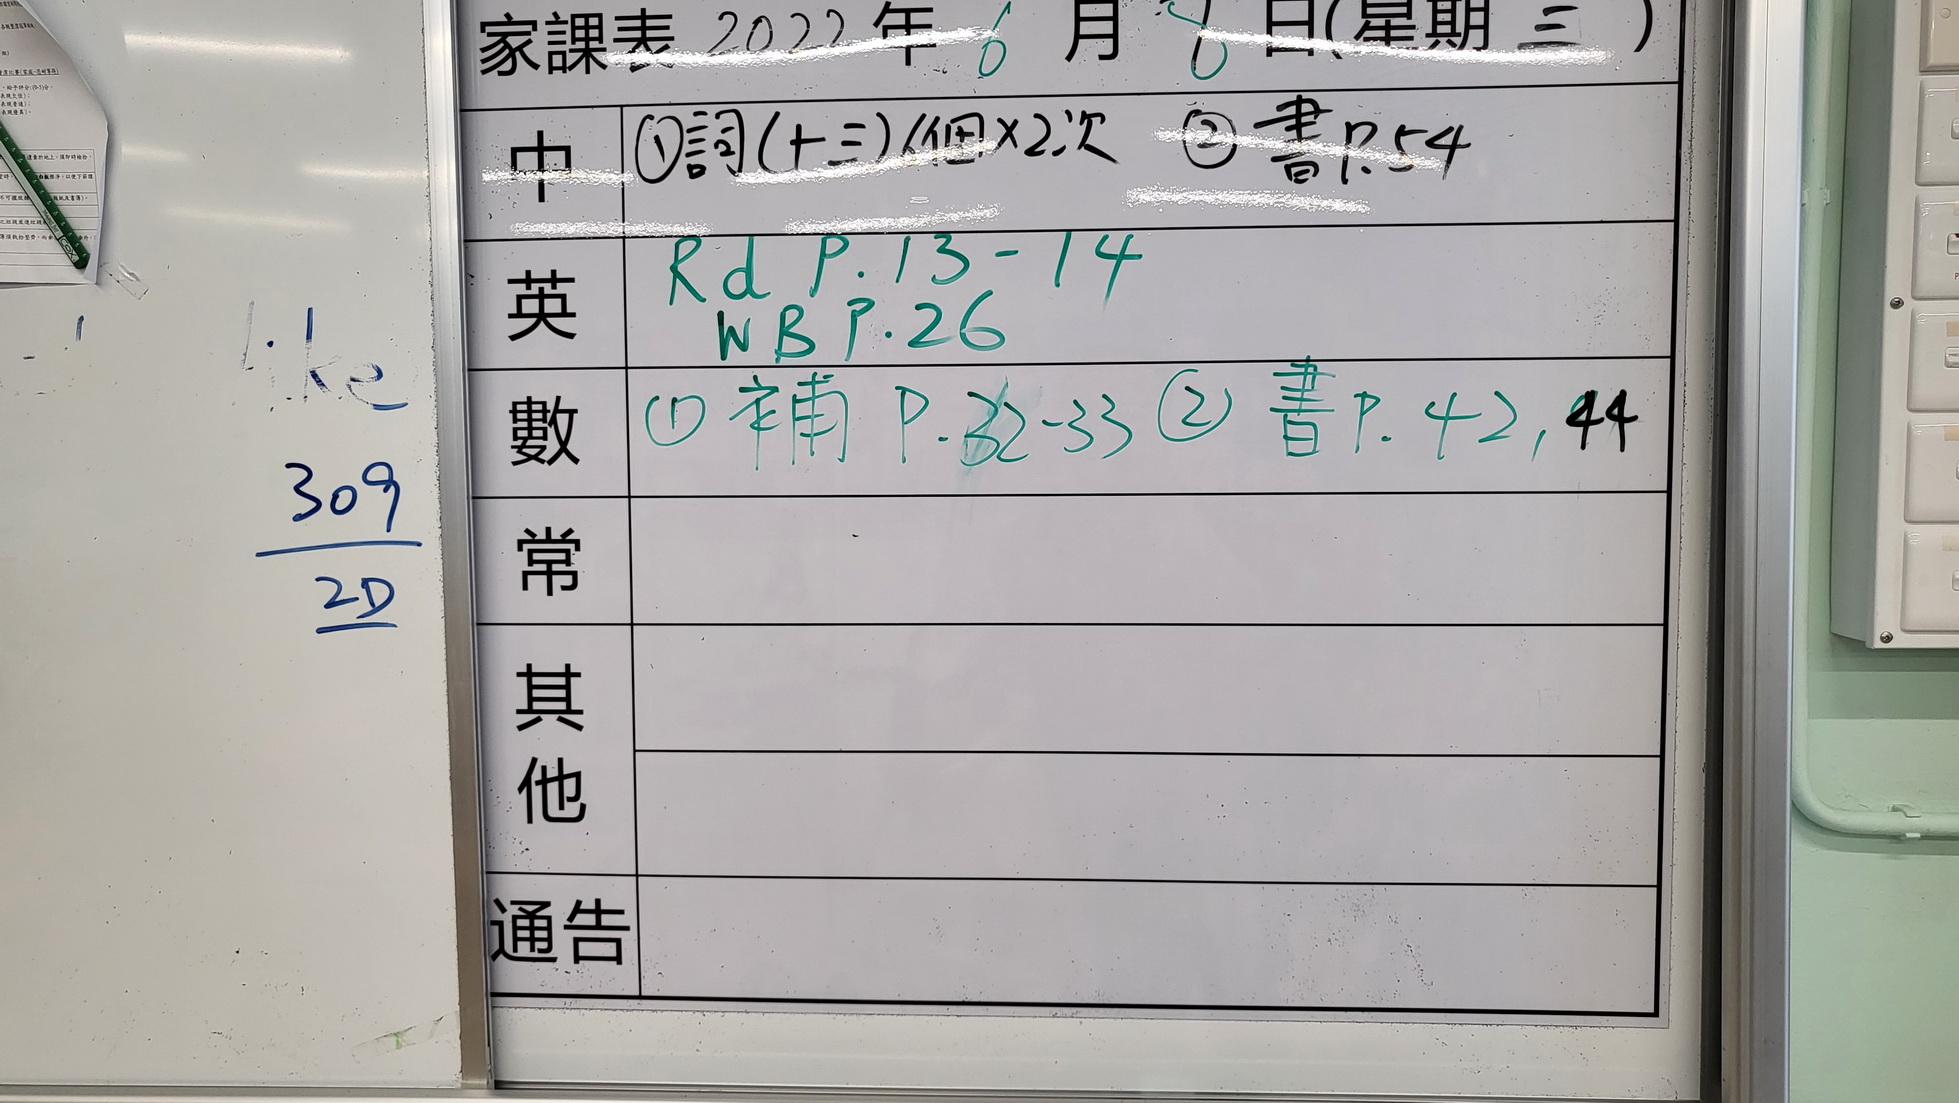 家課表 2022 年 6 月 8 日(星期 三 )
中 ①詞(十三)1個×2次 ② 書P.54
英 Rd P.13-14
WB P.26
數 ① 補 P.32-33 ② 書P.42, 44
常
其他
通告
like
309
2D